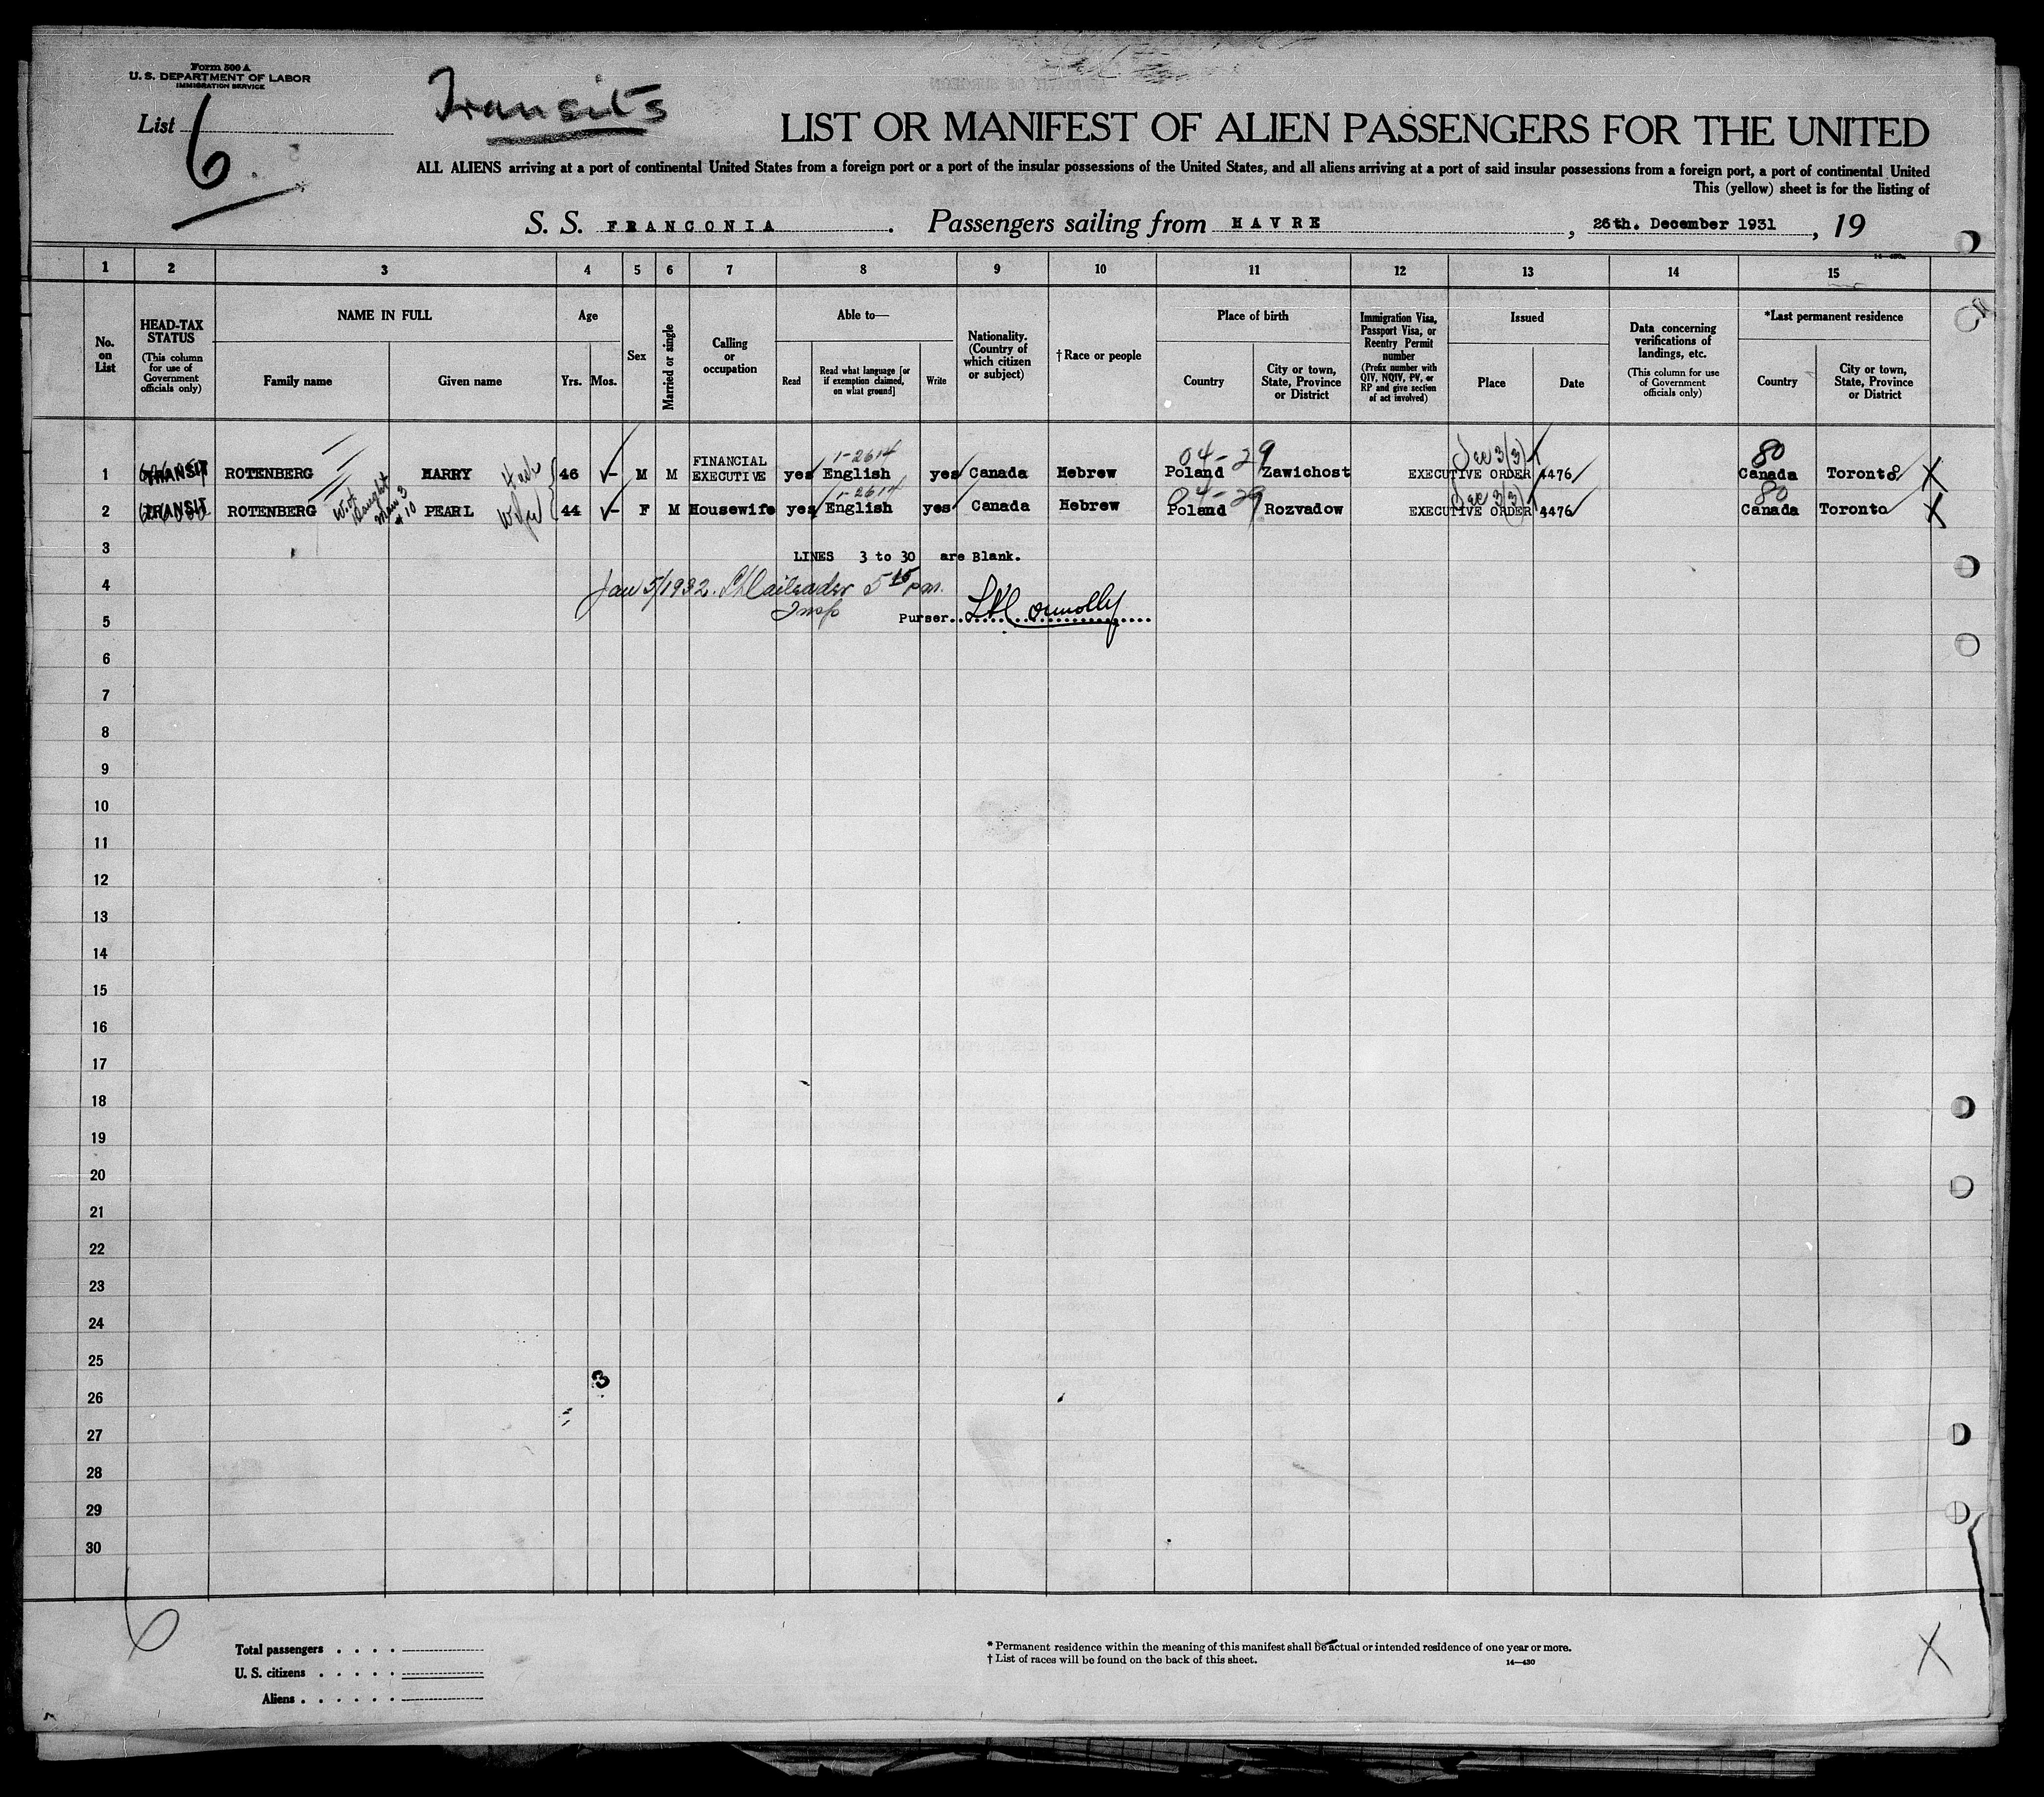 Form 500 A
U. S. DEPARTMENT OF LABOR
IMMIGRATION SERVICE
List 6
Transits
LIST OR MANIFEST OF ALIEN PASSENGERS FOR THE UNITED
ALL ALIENS arriving at a port of continental United States from a foreign port or a port of the insular possessions of the United States, and all aliens arriving at a port of said insular possessions from a foreign port, a port of continental United
This (yellow) sheet is for the listing of
S. S. FRANCONIA. Passengers sailing from HAVRE, 26th. December 1931, 19
1 2 3 4 5 6 7 8 9 10 11 12 13 14 15
No. on List
HEAD-TAX STATUS (This column for use of Government officials only)
NAME IN FULL Family name Given name
Age Yrs. Mos.
Sex
Married or single
Calling or occupation
Able to— Read Read what language [or if exemption claimed, on what ground] Write
Nationality. (Country of which citizen or subject)
† Race or people
Place of birth Country City or town, State, Province or District
Immigration Visa, Passport Visa, or Reentry Permit number (Prefix number with QIV, NQIV, PV, or RP and give section of act involved)
Issued Place Date
Data concerning verifications of landings, etc. (This column for use of Government officials only)
*Last permanent residence Country City or town, State, Province or District
1-2614 04-29 Sec 3(3) 80
1 TRANSIT ROTENBERG HARRY 46 - M M FINANCIAL EXECUTIVE yes English yes Canada Hebrew Poland Zawichost EXECUTIVE ORDER 4476 Canada Toronto X
1-2614 04-29 Sec 3(3) 80
2 TRANSIT ROTENBERG PEARL Wife 44 - F M Housewife yes English yes Canada Hebrew Poland Rozvadow EXECUTIVE ORDER 4476 Canada Toronto X
3 LINES 3 to 30 are Blank.
4 Jan 5/1932. 5 15 pm.
Insp
5 Purser. Connolly
6
7
8
9
10
11
12
13
14
15
16
17
18
19
20
21
22
23
24
25
3
26
27
28
29
30
6
X
Total passengers . . . .
U. S. citizens . . . . .
Aliens . . . . . .
* Permanent residence within the meaning of this manifest shall be actual or intended residence of one year or more.
† List of races will be found on the back of this sheet.
14—430